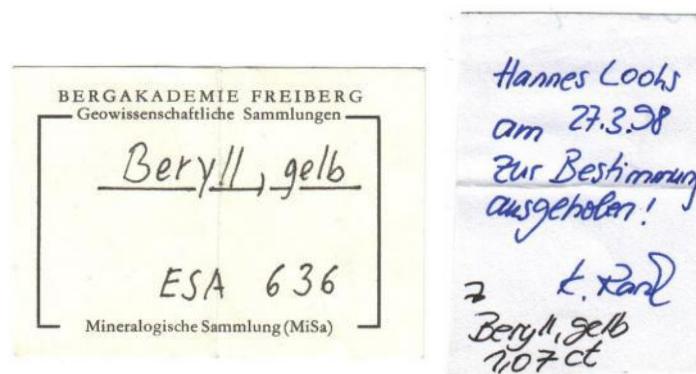 BERGAKADEMIE FREIBERG
Geowissenschaftliche Sammlungen
Beryll, gelb
ESA 636
Mineralogische Sammlung (MiSa)
Hannes Loohs
am 27.3.98
zur Bestimmung
ausgeholen!
K.
Beryll, gelb
1,07 ct